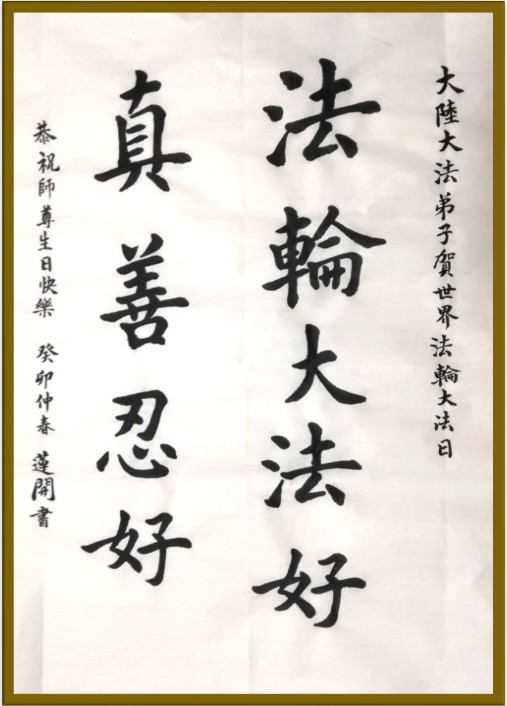 大陸大法弟子賀世界法輪大法日
法輪大法好
真善忍好
恭祝師尊生日快樂 癸卯仲春 蓮開書